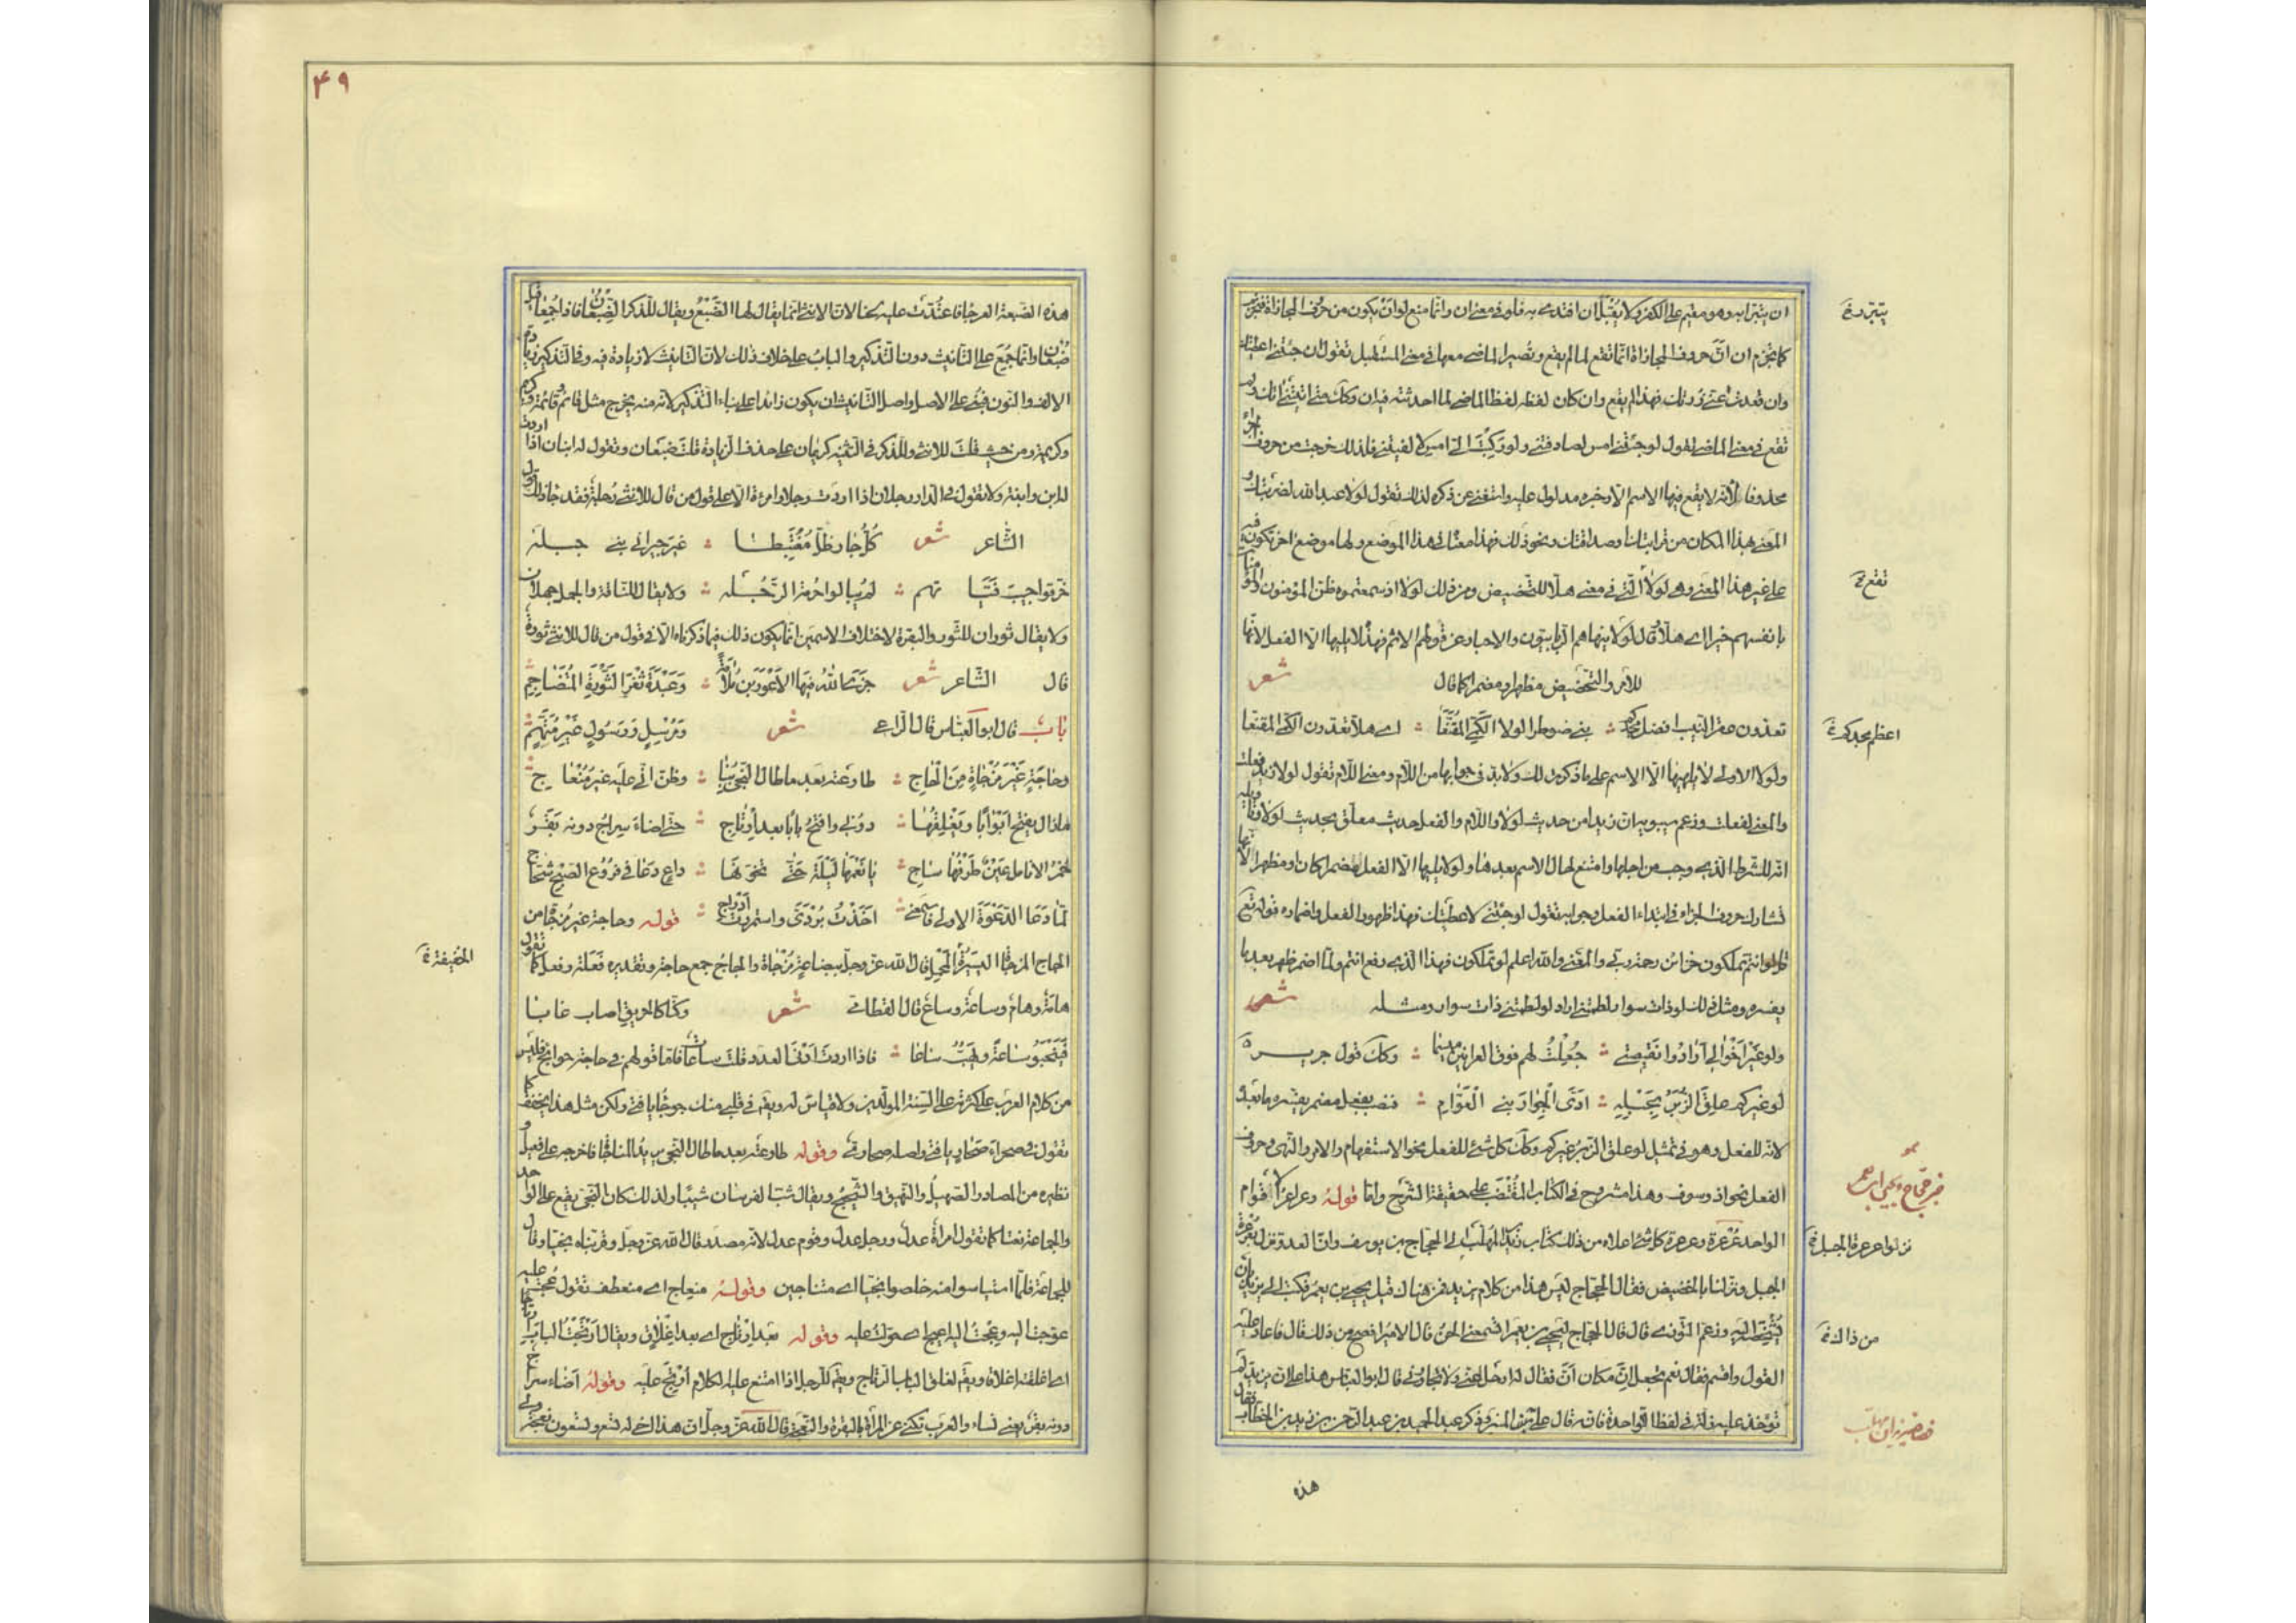 ان يتبرابه وهو مقيم على الكفر ولا يقبل ان افتدى به فلو فى معنى ان وانما منع لو ان يكون من حروف المجازاة فتجزم
كما تجزم ان ان حروف المجازاة انما تقع لما لم يقع وتصير الماضى معها فى معنى المستقبل تقول ان جئتنى اعطيتك
وان قعدت عنى زرتك فهذا لم يقع وان كان لفظه لفظ الماضى لما احدثته فيه ان وكك متى اتيتنى اتيتك ولو
تقع فى معنى الماضى تقول لو جئتنى امس لصادفتنى ولو ركبت الى امس لالفيتنى فلذلك خرجت من حروف الجزاء
محذوفا لانه لا يقع فيها الاسم الا وخبره مدلول عليه واستغنى عن ذكره لذلك تقول لولا عبد الله لضربتك و
المعنى بهذا المكان من قرابتك وصداقتك ونحو ذلك فهذا معناها فى هذا الموضع ولها موضع اخر تكون فيه
على غير هذا المعنى وهى لولا التى فى معنى هلا للتخصيص ومن ذلك لولا اذ سمعتموه ظن المؤمنون والمؤمنات
بانفسهم خيرا اى هلا وقال لولا ينهاهم الربانيون والاحبار عن قولهم الاثم فهذا لا يليها الا الفعل لانها
للامر والتحضيض مظهرا ومضمرا كما قال شعر
تعدون عقر النيب افضل مجدكم بنى ضوطرا لولا الكمى المقنعا اى هلا تعدون الكمى المقنعا
ولولا الاولى لا يليها الا الاسم على ما ذكرت لك ولا بد فى جوابها من اللام ومعنى اللام تقول لولا زيد فعلت
والمعنى لفعلت وزعم سيبويه ان زيدا من حديث لولا واللام والفعل حديث معلق بحديث لولا وتاويله
انه للشرط الذى وجب من اجلها وامتنع لحال الاسم بعدها ولو لا يليها الا الفعل مضمرا كان او مظهرا لانها
تشارك حروف الجزاء فى ابتداء الفعل وجوابه تقول لو جئتنى لاعطيتك فهذا ظهور الفعل واضماره قوله تع
قل لو انتم تملكون خزائن رحمة ربى والمعنى والله اعلم لو تملكون فهذا الذى رفع انتم ولما اضمر ظهر بعده ما
يفسره ومثل ذلك لو ذات سوار لطمتنى اراد لو لطمتنى ذات سوار ومثله شعر
ولو غير اخوالى ارادوا نقيصتى جعلت لهم فوق العرانين ميسما وكك قول جرير
لو غيركم علق الزبير بحبله ادى الجوار بنى العوام فنصب بفعل مضمر يفسره ما بعده
لانه للفعل وهو فى تمثيل لو علق الزبير غيركم وكك كل شئ للفعل نحو الاستفهام والامر والنهى وحروف
الفعل نحو اذ وسوف وهذا مشروح فى الكتاب المقتضب على حقيقة الشرح واما قوله وعراعر الاقوام
الواحد عرعرة وعرعرة كل شئ اعلاه من ذلك كتاب يزيد بن المهلب الى الحجاج بن يوسف وان العدو نزل بعرعرة
الجبل ونزلنا بالحضيض فقال الحجاج ليس هذا من كلام يزيد فمن هناك قيل يحيى بن يعمر فكتب الى يزيد بان
يشخصه اليه وزعم التوزى قال قال الحجاج ليحيى بن يعمر اتسمعنى الحن قال الامير افصح من ذلك قال فاعاد عليه
القول واقسم فقال نعم تجعل ان مكان ان فقال له ارحل عنى ولا تجاورنى قال ابو العباس هذا على ان يزيد لم
تؤخذ عليه زلة فى لفظ الا واحدة فانه قال على المنبر وذكر عبد الحميد بن عبد الرحمن بن زيد بن الخطاب فقال
هذه
تقع
اعظم مجدكم
نزلوا عرعرة الجبل
من ذاك
۴۹
هذه الضبعة العرجا فاعتدت عليه لحنا لان الانثى انما يقال لها الضبع ويقال للذكر الضبعان فاذا جمعا قيل
ضبعان وانما جمع على التانيث دون التذكير والباب على خلاف ذلك لان التانيث لا زيادة فيه وفى التذكير زيادة
الالف والنون فبنى على الاصل واصل التانيث ان يكون زائدا على بناء التذكير لانه منه يخرج مثل قائم وقائمة وكريم
وكريمة ومن حيث قلت للانثى وللذكر فى التثنية كريمان على حذف الزيادة قلت ضبعان وتقول له ابنان اذا اردت
ابن وابنة ولا تقول فى الدار رجلان اذا اردت رجلا وامرءة الا على قول من قال للانثى رجلة فقد جاز ذلك قول
الشاعر شعر كل جار ظل مغتبطا غير جيرانى بنى جبلة
خرقوا جيب فتاتهم لم يبالوا حرمة الرجلة ولا يقال للناقة والجمل جملان
ولا يقال ثوران للثور والبقرة لاختلاف الاسمين انما يكون ذلك فيما ذكرناه الا فى قول من قال للانثى ثورة
قال الشاعر شعر جزى الله فيها الاعورين ملامة وعبدة ثغر الثورة المتضاجم
باب قال ابو العباس قال الراعى شعر ومرسل ورسول غير متهم
وحاجة غير مزجاة من الحاج طاوعته بعد ما طال النجى بنا وظن انى عليه غير منعاج
ما زال يفتح ابوابا ويغلقها دونى وافتح بابا بعد ارتاج حتى اضاء سراج دونه بقر
حمر الانامل عين طرفها ساج يا نعمها ليلة حتى تخونها داع دعا فى فروع الصبح شحاج
لما دعا الدعوة الاولى فاسمعنى اخذت بردى واستمررت ادراجى قوله وحاجة غير مزجاة من
الحاج المزجاة اليسيرة الخفيفة قال الله عز وجل ببضاعة مزجاة والحاج جمع حاجة وتقديره فعلة وفعل كما تقول
هامة وهام وساعة وساع قال القطامى شعر وكنا كالحريق اصاب غابا
فيخبو ساعة ويهب ساعا فاذا اردت ادنى العدد قلت ساعات فاما قولهم فى حاجة حوائج فليس
من كلام العرب على كثرته على السنة المولدين ولا قياس له ويقم فى قلبى منك حوجاء يا فتى ولكن مثل هذا يخفف كما
تقول فى صحراء صحار يا فتى واصله صحارى وقوله طاوعته بعد ما طال النجى يريد المناجاة فاخرجه على فعيل و
نظيره من المصادر الصهيل والنهيق والشحيج ويقال شب الفرس شبيبا ولذلك كان النجى يقع على الواحد
والجماعة نعتا كما تقول امراة عدل ورجل عدل وقوم عدل لانه مصدر قال الله عز وجل وقربناه نجيا وقال
للجماعة فلما استياسوا منه خلصوا نجيا اى متناجين وقوله منعاج اى منعطف تقول عجت عليه
عوجت اليه وعجت اليه اعيج اى عولت عليه وقوله بعد ارتاج اى بعد اغلاق ويقال ارتجت الباب ارتاجا
اى اغلقته اغلاقا ويقم لغلق الباب الرتاج ويقم للرجل اذا امتنع عليه الكلام ارتج عليه وقوله اضاء سراج
دونه بقر يعنى نساء والعرب تكنى عن المراة بالبقرة والنعجة قال الله عز وجل ان هذا اخى له تسع وتسعون نعجة ولى
الخفيفة